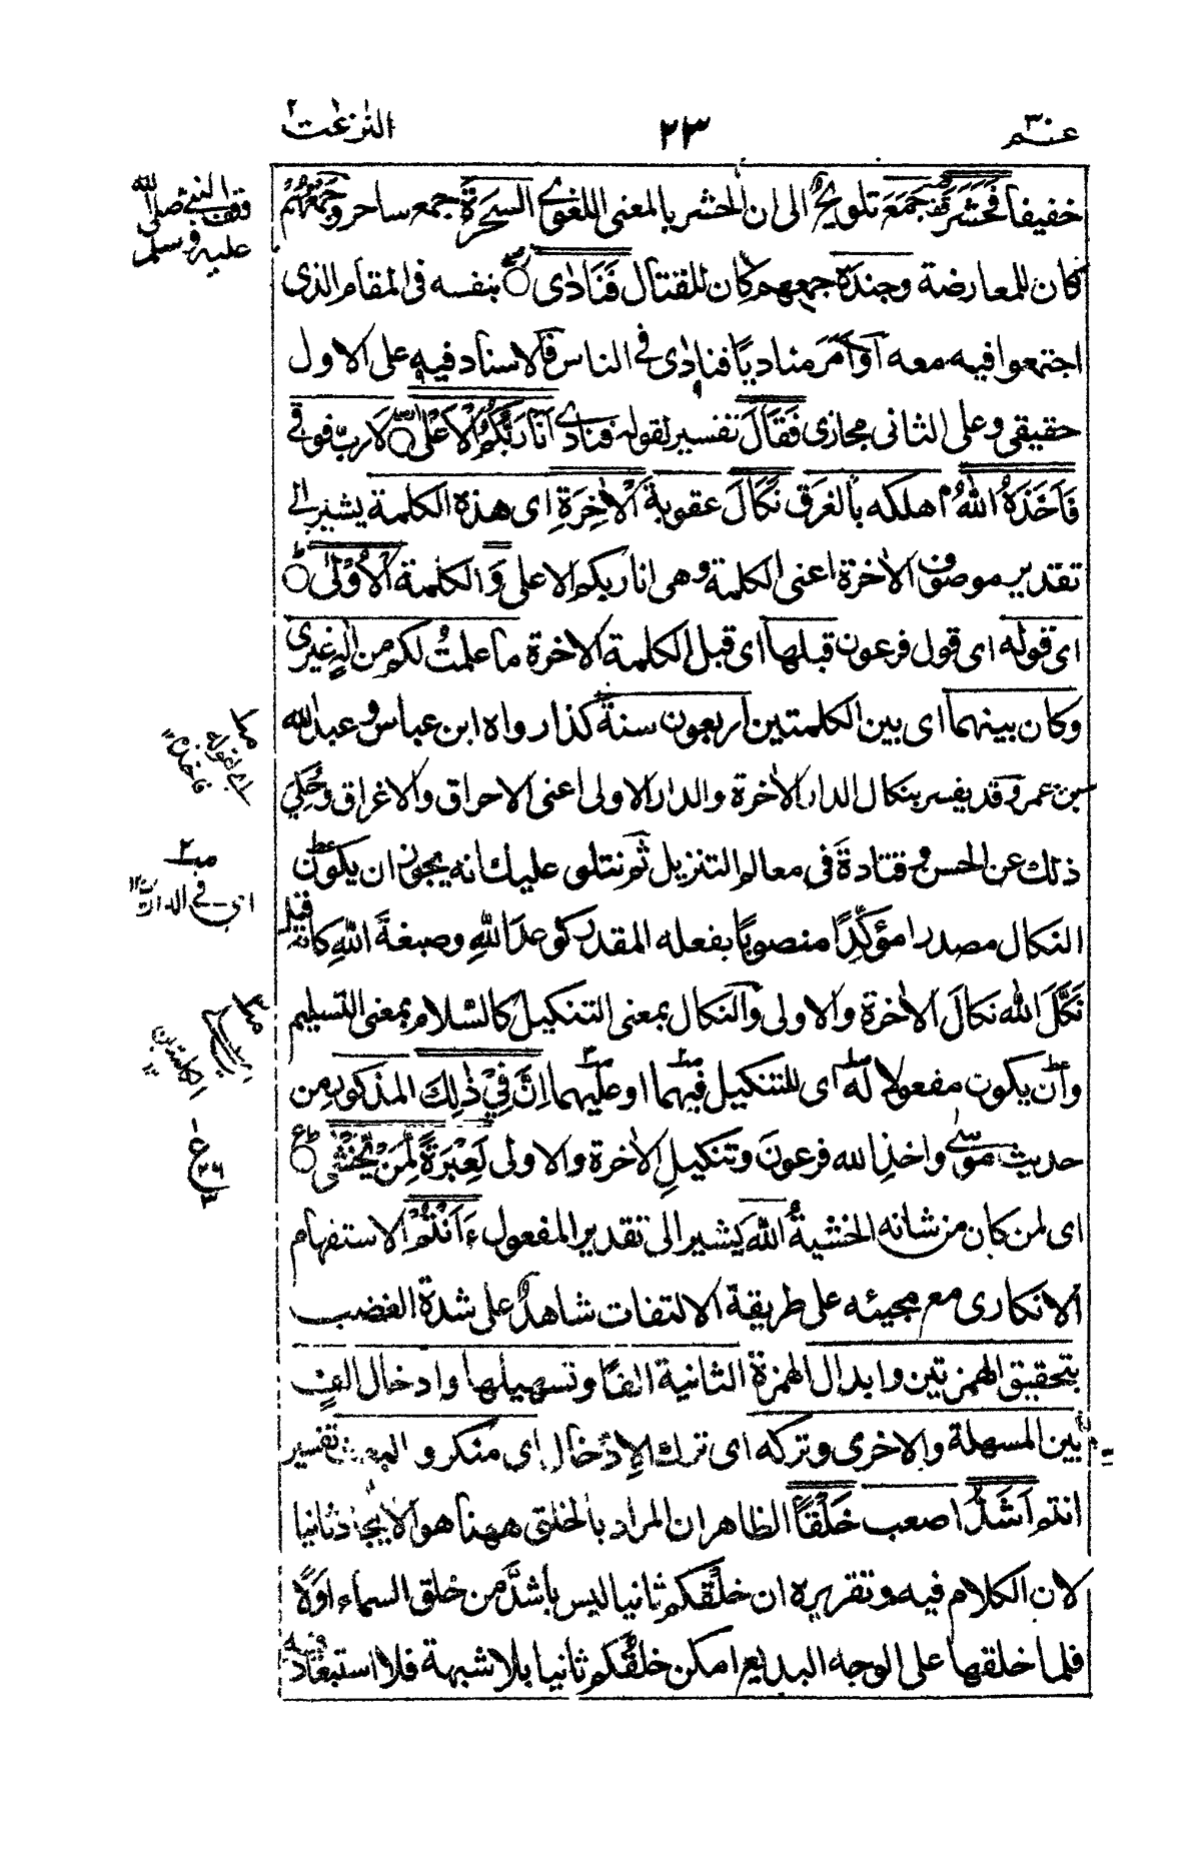 عم ٣٠ ٢٣ النزعت
خفيفا فَحَشَرَ قف جَمَعَ تلويحٌ الى ان الحشر بالمعنى اللغوي السَحَرَةَ جمع ساحر وجَمْعُهُمْ
وقف النبي صلى الله
عليه وسلم
كان للمعارضة وجندَهٗ جمعهم كان للقتال فَنَادٰى بنفسه فى المقام الذى
اجتمعوا فيه معه اَوْ اَمَرَ مناديًا فنادٰى فى الناس فالاسناد فيه على الاول
حقيقى وعلى الثانى مجازى فَقَالَ تفسير لقوله فنادى اَنَا رَبُّكُمُ الْاَعْلٰى لا ربّ فوقى
فَاَخَذَهُ اللّٰهُ اهلكه بالغرق نَكَالَ عقوبة الْاٰخِرَةِ اى هذه الكلمة يشير الى
تقدير موصوف الاٰخرة اعنى الكلمة وهى انا ربكم الاعلى وَ الكلمة الْاُوْلٰى
اى قوله اى قول فرعون قبلها اى قبل الكلمة الاخرة ما علمتُ لكم من الٰهٍ غيرى
وكان بينهما اى بين الكلمتين اربعون سنةً كذا رواه ابن عباس وعبد الله
بن عمر وقد يفسر بنكال الدار الاٰخرة والدار الاولى اعنى الاحراق والاغراق وحُكِى
ذلك عن الحسن وقتادةَ فى معالم التنزيل ثم نتلو عليك انه يجوز ان يكون
ا ى فى الدارين ١٢
النكال مصدرا مؤكِّدًا منصوبًا بفعله المقدر كوعدَ اللّٰهِ وصبغةَ اللّٰهِ كانه قيل
نَكَّلَ الله نكالَ الاٰخرة والاولى والنكال بمعنى التنكيل كالسّلام بمعنى التسليم
وان يكون مفعولا له اى للتنكيل فيهما او عليهما اِنَّ فِيْ ذٰلِكَ المذكور مِن
حديث موسٰى واخذِ الله فرعونَ وتنكيلِ الاٰخرة والاولى لَعِبْرَةً لِّمَنْ يَّخْشٰى
اى لمن كان من شانه الخشيةُ اللهَ يشير الى تقدير المفعول ءَاَنْتُمْ الاستفهام
الانكارى مع مجيئه على طريقة الالتفات شاهدٌ على شدة الغضب
بتحقيق الهمزتين وابدال الهمزة الثانية الفًا وتسهيلها وادخال الفٍ
بين المسهلة والاخرى وتركه اى ترك الادخال اى منكرو تفسير
انتم اَشَدُّ اصعب خَلْقًا الظاهر ان المراد بالخلق ههنا هو الايجاد ثانيا
لان الكلام فيه وتقريره ان خلقكم ثانيا ليس باشدّ من خلق السماء اوّلًا
فلما خلقها على الوجه البديع امكن خلقُكم ثانيا بلا شبهة فلا استبعاد